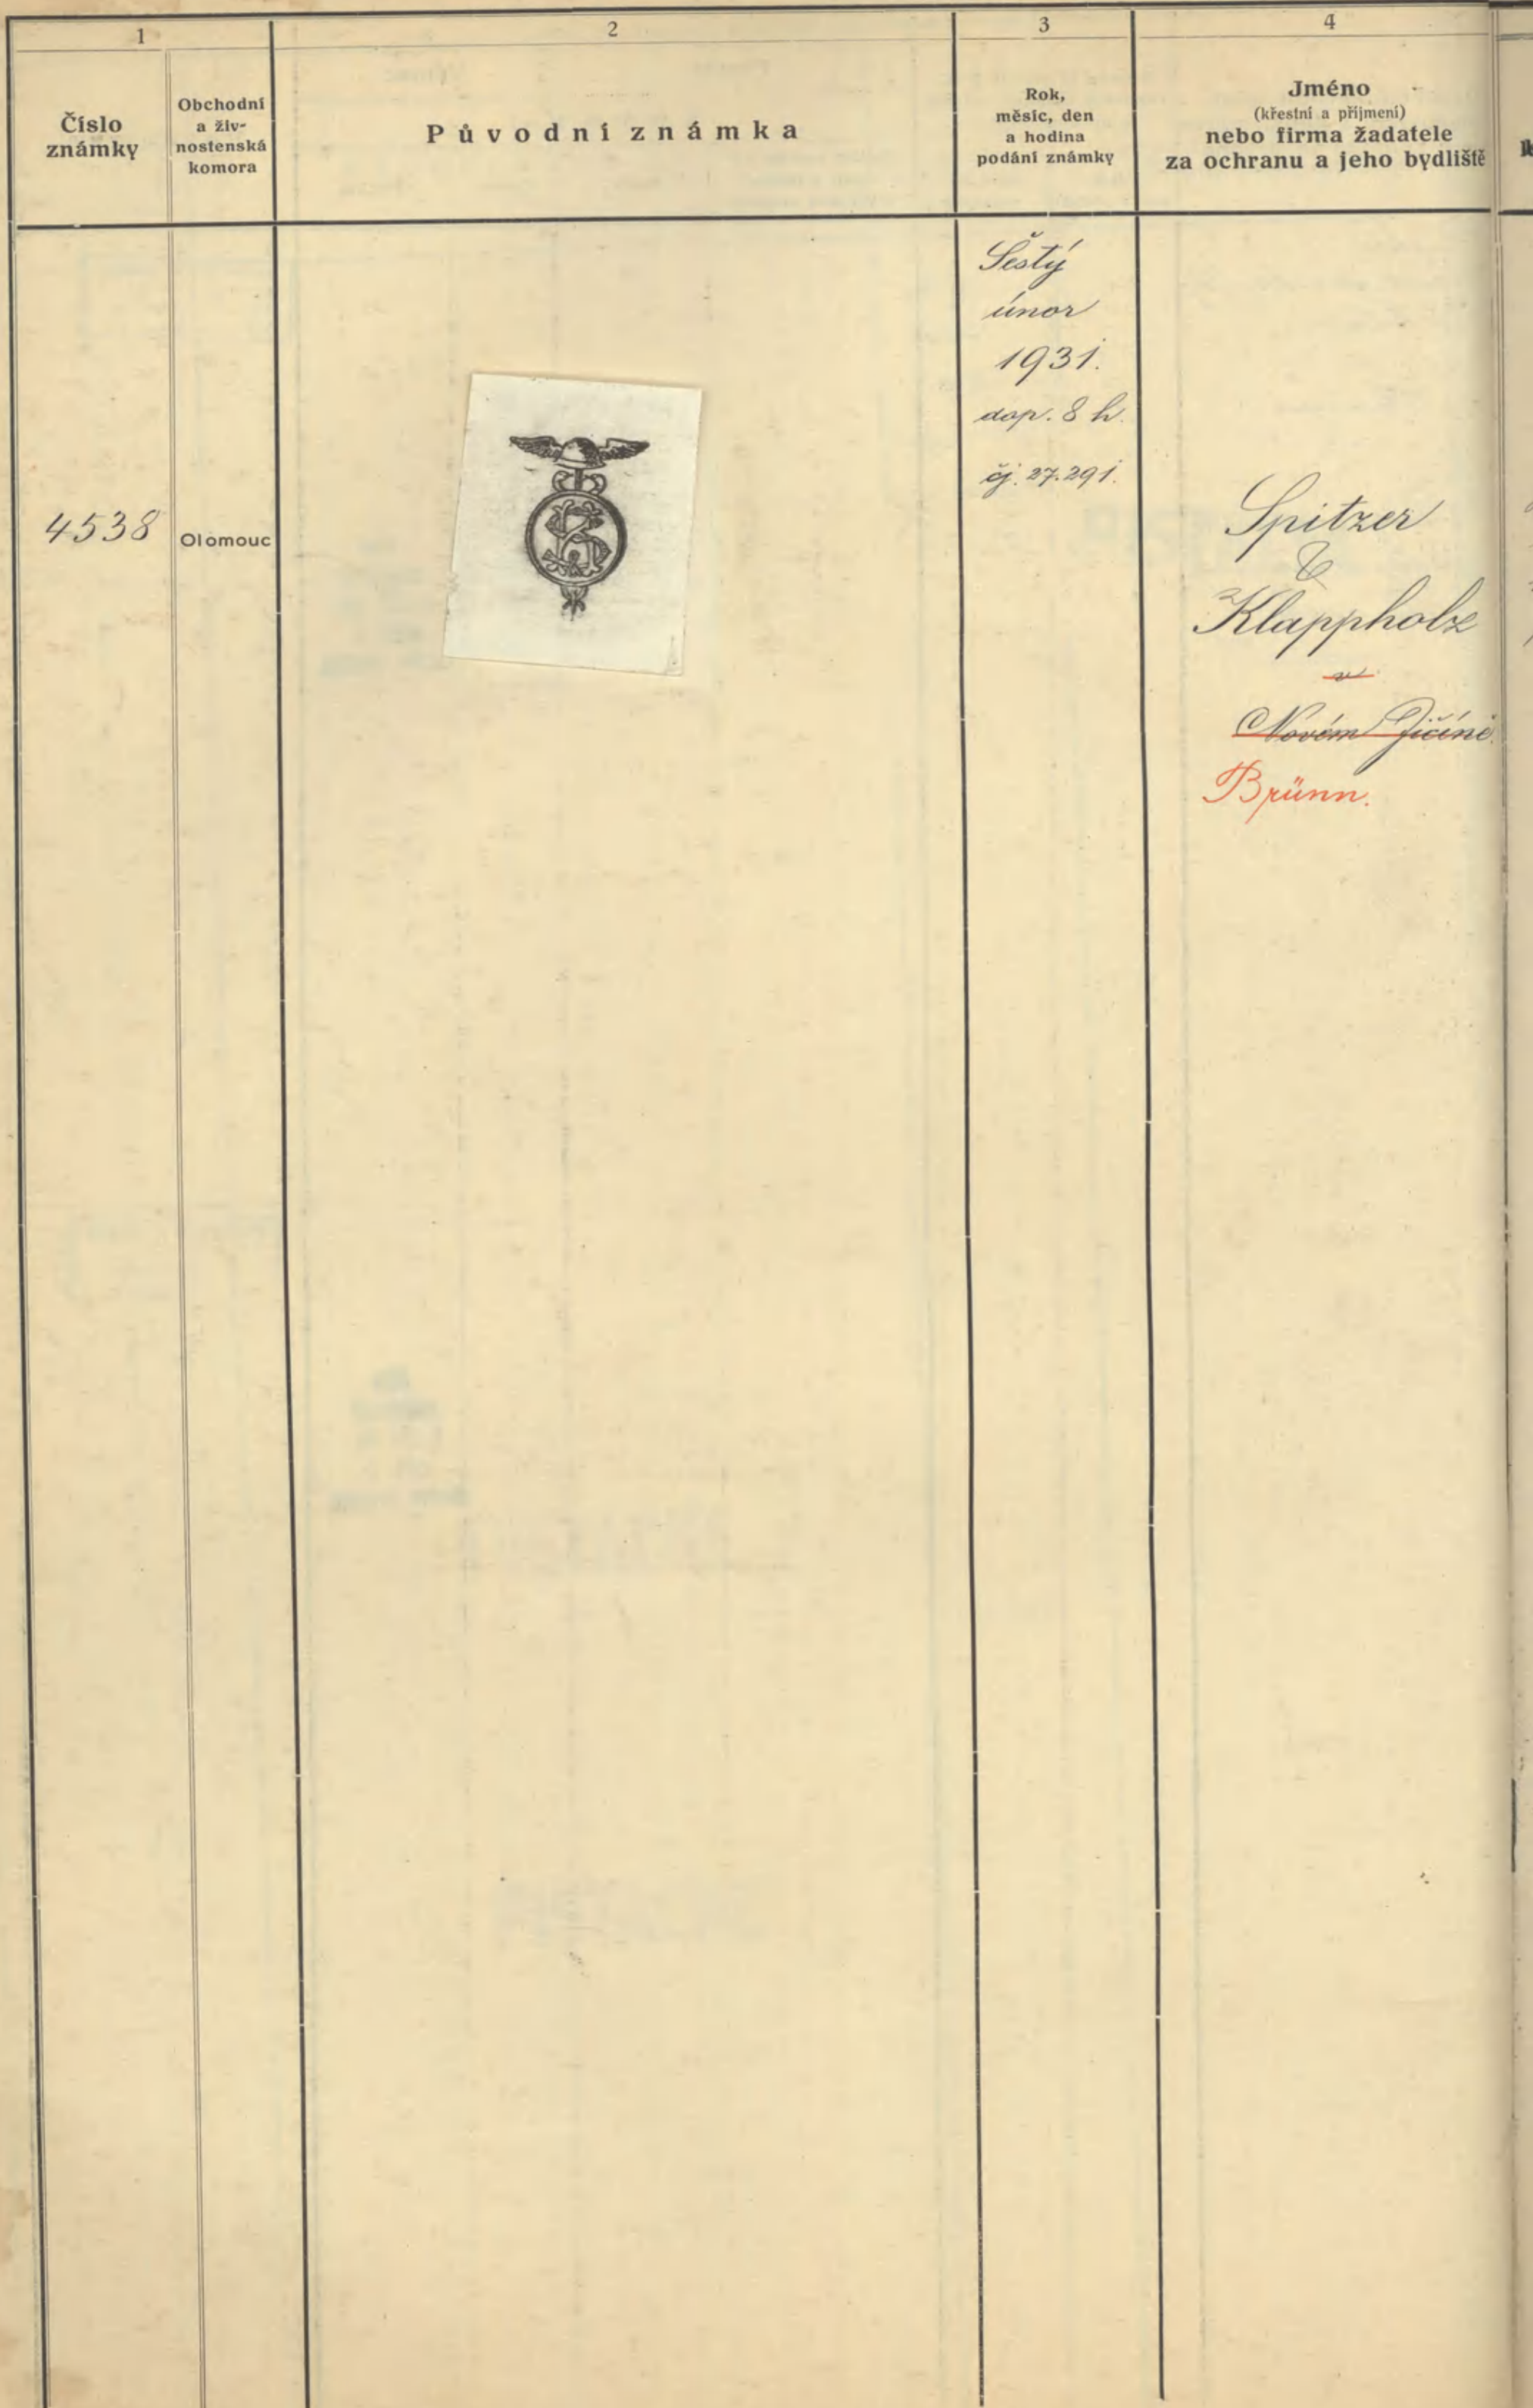 1
2
3
4
Číslo
známky
Obchodní
a živ-
nostenská
komora
Původní známka
Rok,
měsíc, den
a hodina
podání známky
Jméno
(křestní a příjmení)
nebo firma žadatele
za ochranu a jeho bydliště
4538
Olomouc
Šestý
únor
1931.
dop. 8 h.
čj. 27.291.
Spitzer
&
Klappholz
v
Novém Jičíně.
Brünn.